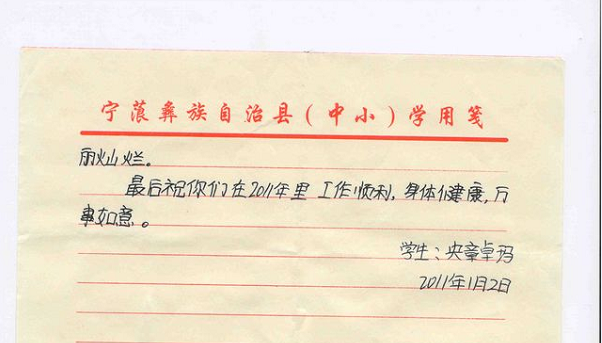 宁蒗彝族自治县(中小)学用笺
丽灿烂。
最后祝你们在2011年里 工作顺利,身体健康,万
事如意。
学生:央章卓玛
2011年1月2日